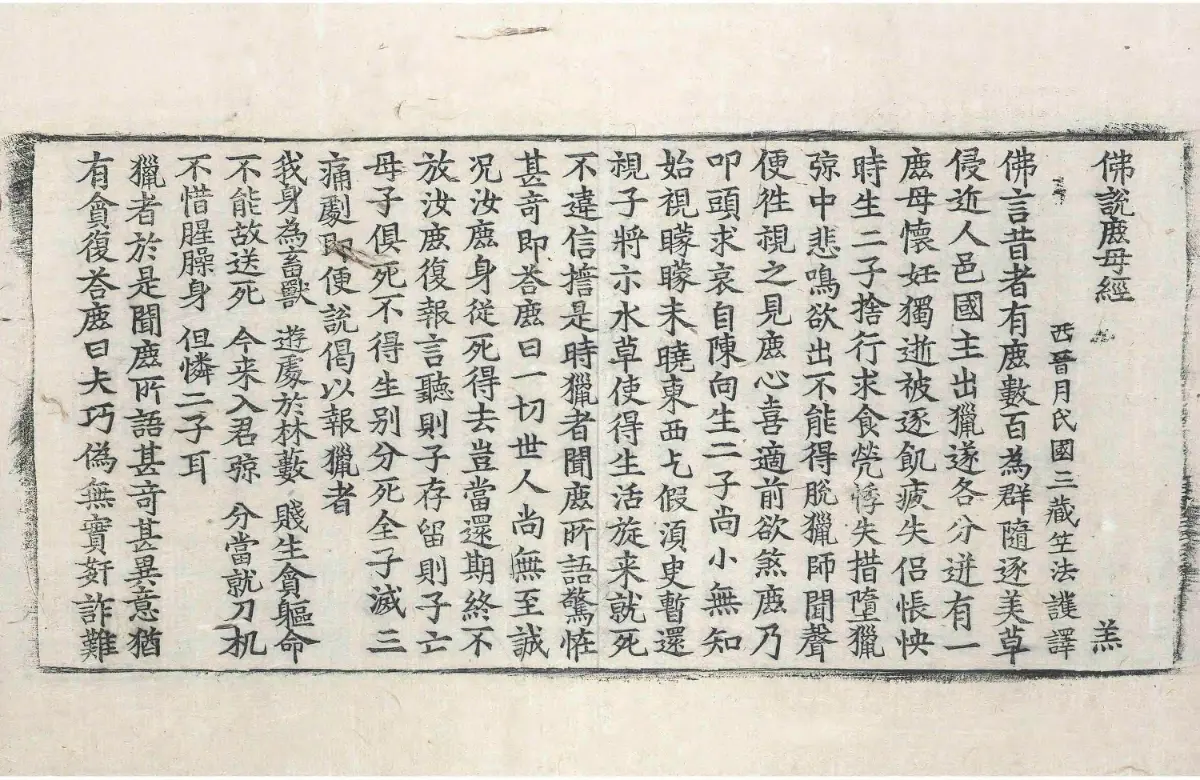 佛說鹿母經 羔
西晉月氏國三藏竺法護譯
佛言昔者有鹿數百為群隨逐美草
侵近人邑國主出獵遂各分迸有一
鹿母懷妊獨逝被逐飢疲失侶悵怏
時生二子捨行求食煢悸失措墮獵
弶中悲鳴欲出不能得脫獵師聞聲
便往視之見鹿心喜適前欲煞鹿乃
叩頭求哀自陳向生二子尚小無知
始視矇矇未曉東西乞假湏臾暫還
視子將示水草使得生活旋来就死
不違信擔是時獵者聞鹿所語驚恠
甚竒即荅鹿曰一切世人尚無至誠
况汝鹿身從死得去豈當還期終不
放汝鹿復報言聽則子存留則子亡
母子俱死不得生别分死全子滅三
痛劇即便說偈以報獵者
我身為畜獸 遊處於林藪 賤生貪軀命
不能故送死 今来入君弶 分當就刀机
不惜腥臊身 但憐二子耳
獵者於是聞鹿所語甚竒甚異意猶
有貪復荅鹿曰夫巧偽無實姧詐難